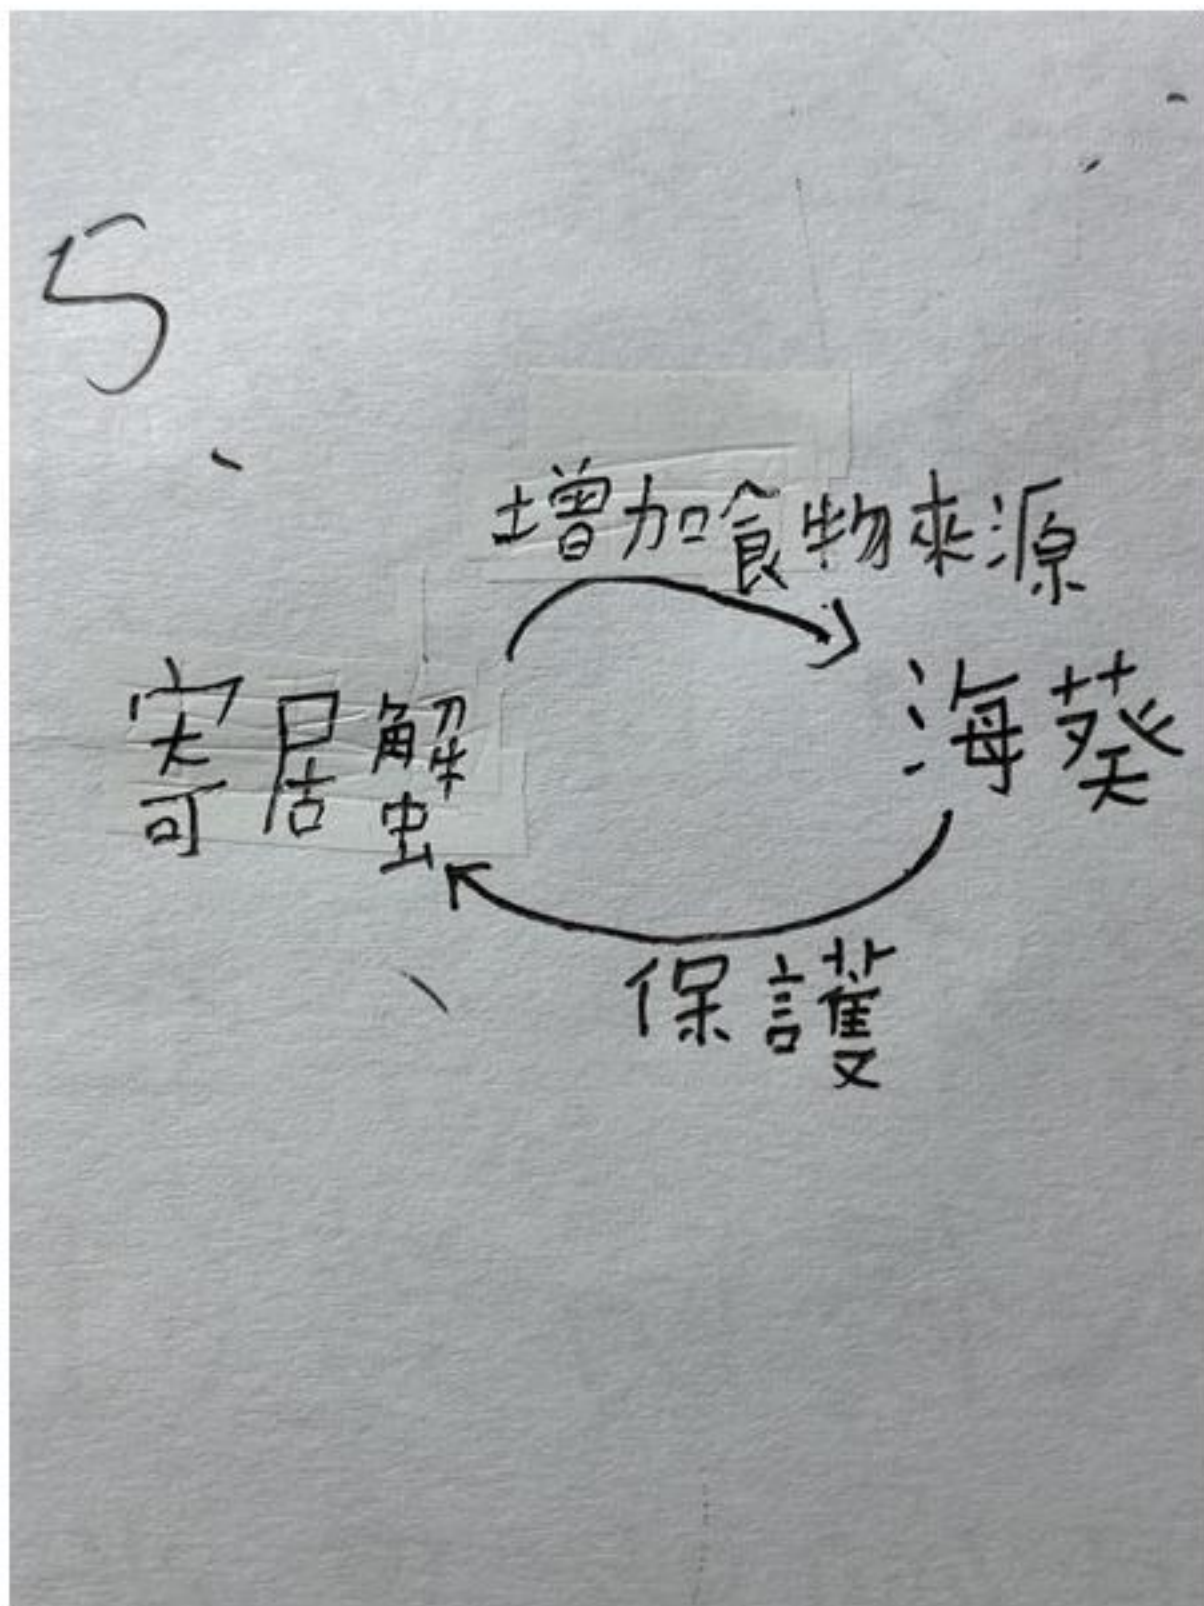 5
增加食物來源
寄居蟹
海葵
保護